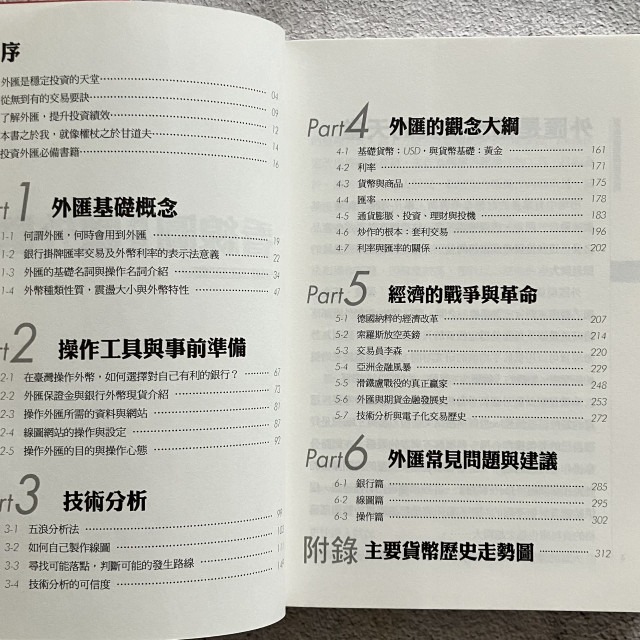 序
外匯是穩定投資的天堂 04
從無到有的交易要訣 09
了解外匯，提升投資績效 12
本書之於我，就像權杖之於甘道夫 14
投資外匯必備書籍 16
Part 1 外匯基礎概念
1-1 何謂外匯，何時會用到外匯 19
1-2 銀行掛牌匯率交易及外幣利率的表示法意義 22
1-3 外匯的基礎名詞與操作名詞介紹 34
1-4 外幣種類性質，震盪大小與外幣特性 47
Part 2 操作工具與事前準備
2-1 在臺灣操作外幣，如何選擇對自己有利的銀行？ 67
2-2 外匯保證金與銀行外幣現貨介紹 73
2-3 操作外匯所需的資料與網站 81
2-4 線圖網站的操作與設定 87
2-5 操作外匯的目的與操作心態 92
Part 3 技術分析
3-1 五浪分析法
3-2 如何自己製作線圖
3-3 尋找可能落點，判斷可能的發生路線
3-4 技術分析的可信度
Part 4 外匯的觀念大綱
4-1 基礎貨幣：USD，與貨幣基礎：黃金 161
4-2 利率 171
4-3 貨幣與商品 175
4-4 匯率 178
4-5 通貨膨脹、投資、理財與投機 183
4-6 炒作的根本：套利交易 197
4-7 利率與匯率的關係 202
Part 5 經濟的戰爭與革命
5-1 德國納粹的經濟改革 207
5-2 索羅斯放空英鎊 214
5-3 交易員李森 220
5-4 亞洲金融風暴 229
5-5 滑鐵盧戰役的真正贏家 248
5-6 外匯與期貨金融發展史 253
5-7 技術分析與電子化交易歷史 272
Part 6 外匯常見問題與建議
6-1 銀行篇 285
6-2 線圖篇 295
6-3 操作篇 302
附錄 主要貨幣歷史走勢圖 312